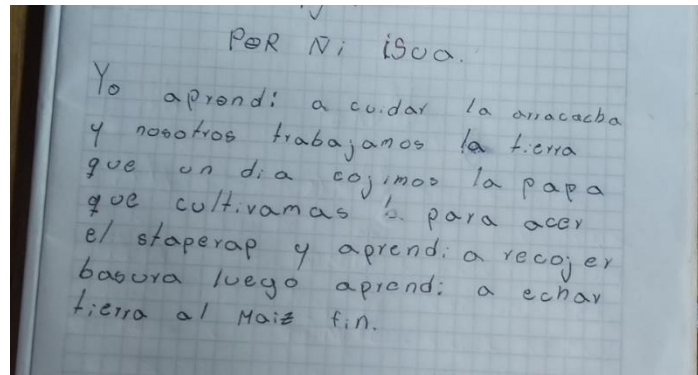 POR Ñi iSUa.
Yo aprendi a cuidar la arracacha
y nosotros trabajamos la tierra
que un dia cojimos la papa
que cultivamas para acer
el staperap y aprendi a recojer
basura luego aprendi a echar
tierra al Maiz fin.